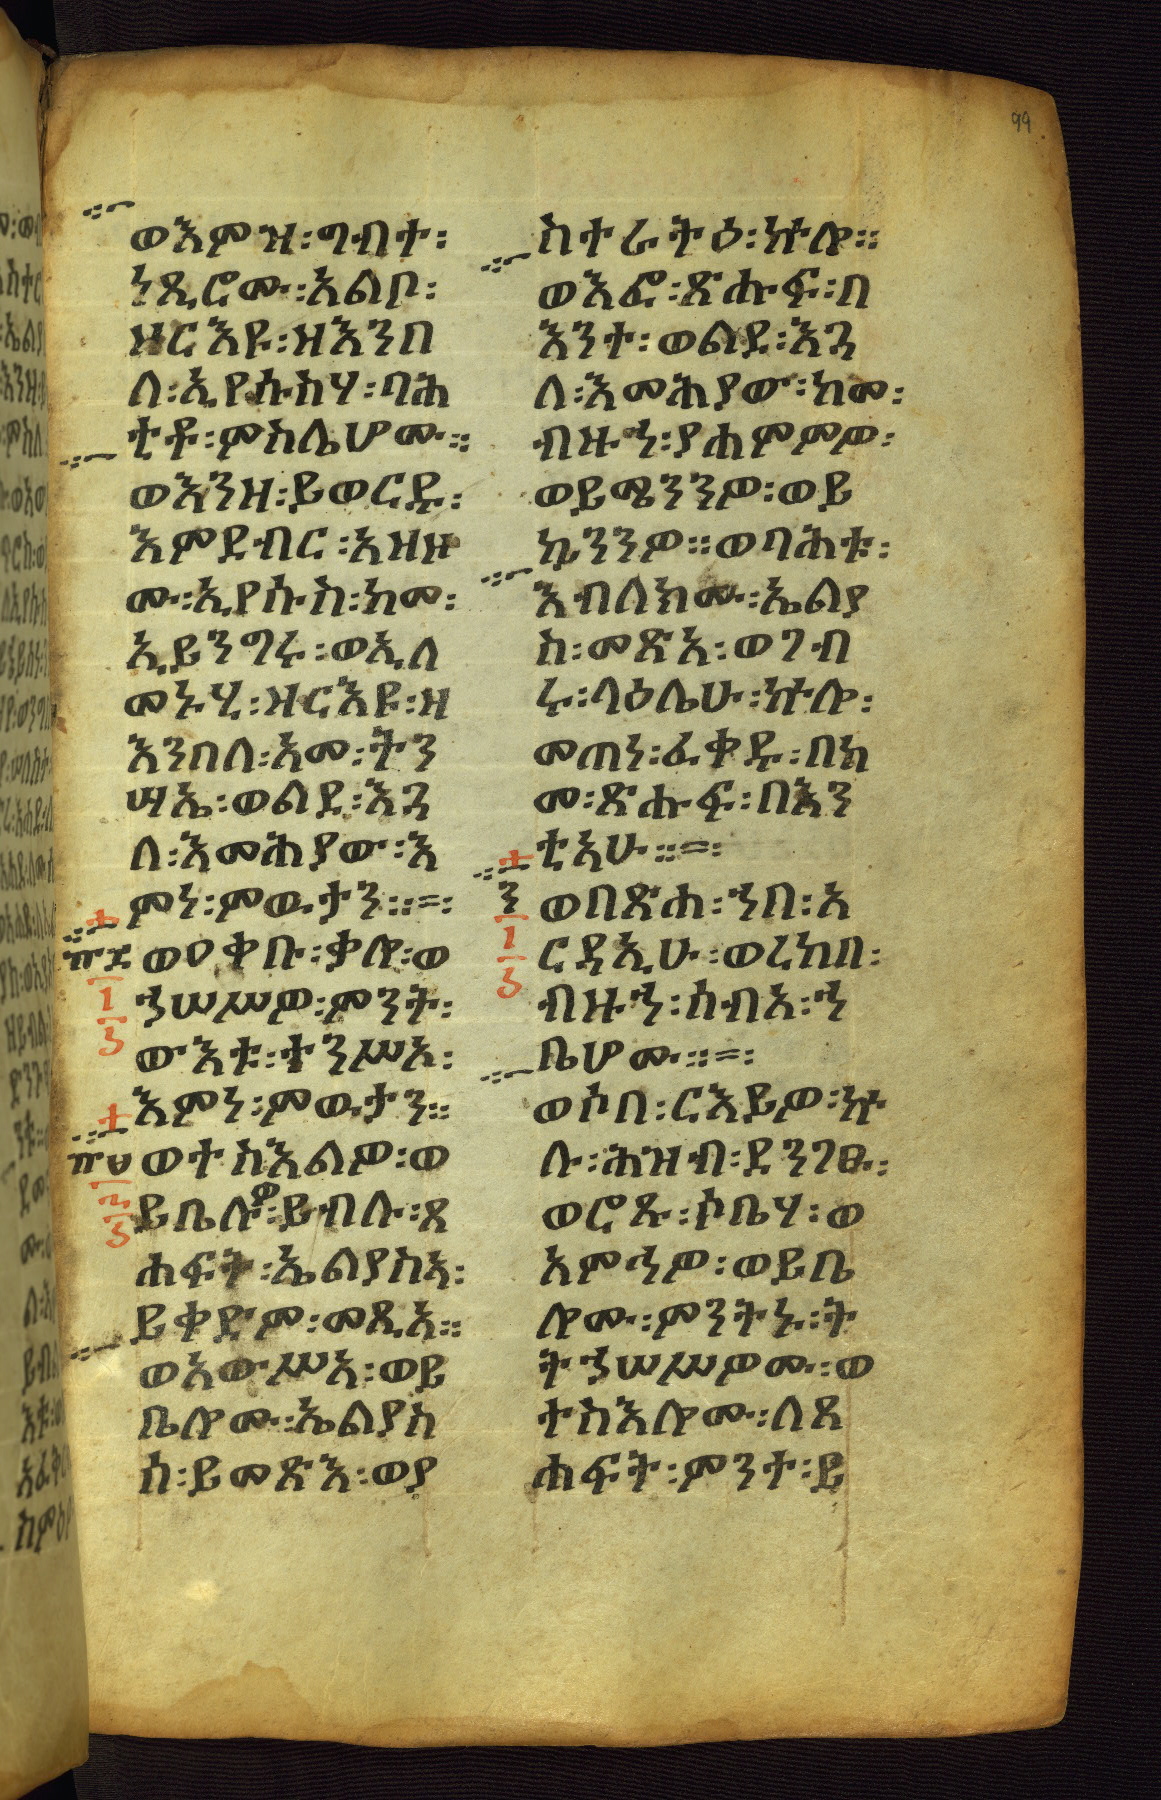 99
ወእምዝ፡ግብተ፡
ነጺሮሙ፡አልቦ፡
ዘርእዩ፡ዘእንበ
ለ፡ኢየሱስሃ፡ባሕ
ቲቶ፡ምስሌሆሙ።
ወእንዘ፡ይወርዱ፡
እምደብር፡አዘዞ
ሙ፡ኢየሱስ፡ከመ፡
ኢይንግሩ፡ወኢለ
መኑሂ፡ዘርእዩ፡ዘ
እንበለ፡አመ፡ትን
ሣኤ፡ወልደ፡እጓ
ለ፡እመሕያው፡እ
ምነ፡ምዉታን።=፡
ወዐቀቡ፡ቃሎ፡ወ
ኀሠሥዎ፡ምንት፡
ውእቱ፡ተንሥአ፡
እምነ፡ምዉታን።
ወተስእልዎ፡ወ
ይቤልዎ፡ይብሉ፡ጸ
ሐፍት፡ኤልያስአ፡
ይቀድም፡መጺአ።
ወአውሥአ፡ወይ
ቤሎሙ፡ኤልያስ
ሰ፡ይመጽእ፡ወያ
ስተራትዕ፡ኵሎ።
ወእፎ፡ጽሑፍ፡በ
እንተ፡ወልደ፡እጓ
ለ፡እመሕያው፡ከመ፡
ብዙኀ፡ያሐምምዎ፡
ወይሜንንዎ፡ወይ
ኬንንዎ።ወባሕቱ፡
እብለክሙ፡ኤልያ
ስ፡መጽአ፡ወገብ
ሩ፡ላዕሌሁ፡ኵሎ፡
መጠነ፡ፈቀዱ፡በከ
መ፡ጽሑፍ፡በእን
ቲአሁ።=፡
ወበጽሐ፡ኀበ፡አ
ርዳኢሁ፡ወረከበ፡
ብዙኀ፡ሰብአ፡ኀ
ቤሆሙ።=፡
ወሶበ፡ርእይዎ፡ኵ
ሉ፡ሕዝብ፡ደንገፁ፡
ወሮጹ፡ሶቤሃ፡ወ
አምኅዎ፡ወይቤ
ሎሙ፡ምንትኑ፡ት
ትኀሠሥዎሙ፡ወ
ተስእሎሙ፡ለጸ
ሐፍት፡ምንተ፡ይ